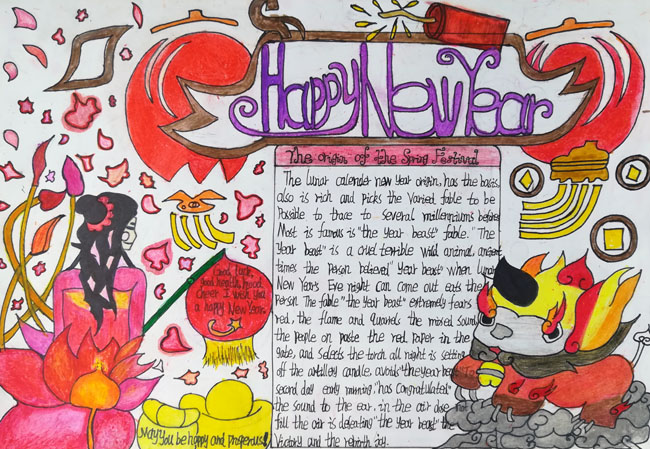 Happy New Year
The origin of the Spring Festival
The lunar calender new year origin, has the basis,
also is rich and picks the varied fable to be
Possible to trace to several millenniums before
Most is famous is "the year beast" fable. "The
Year beast" is a cruel terrible wild animal, ancient
times the Person believed "Year beast" when lunar
New Year's Eve night can come out eats the
Person. The fable "the year beast" extremely fears
red, the flame and quarrels the mixed sound,
the people on paste the red paper in the
gate, and selects the torch all night is setting
off the artillery candle, avoids "the year beast"
second day early morning, "has congratulated"
the sound to the ear, in the air dise
fill the air is defeating "the year beast" the
Victory and the rebirth joy.
Good luck,
good health, hood
cheer. I wish you
a happy New Year.
May you be happy and prosperous!